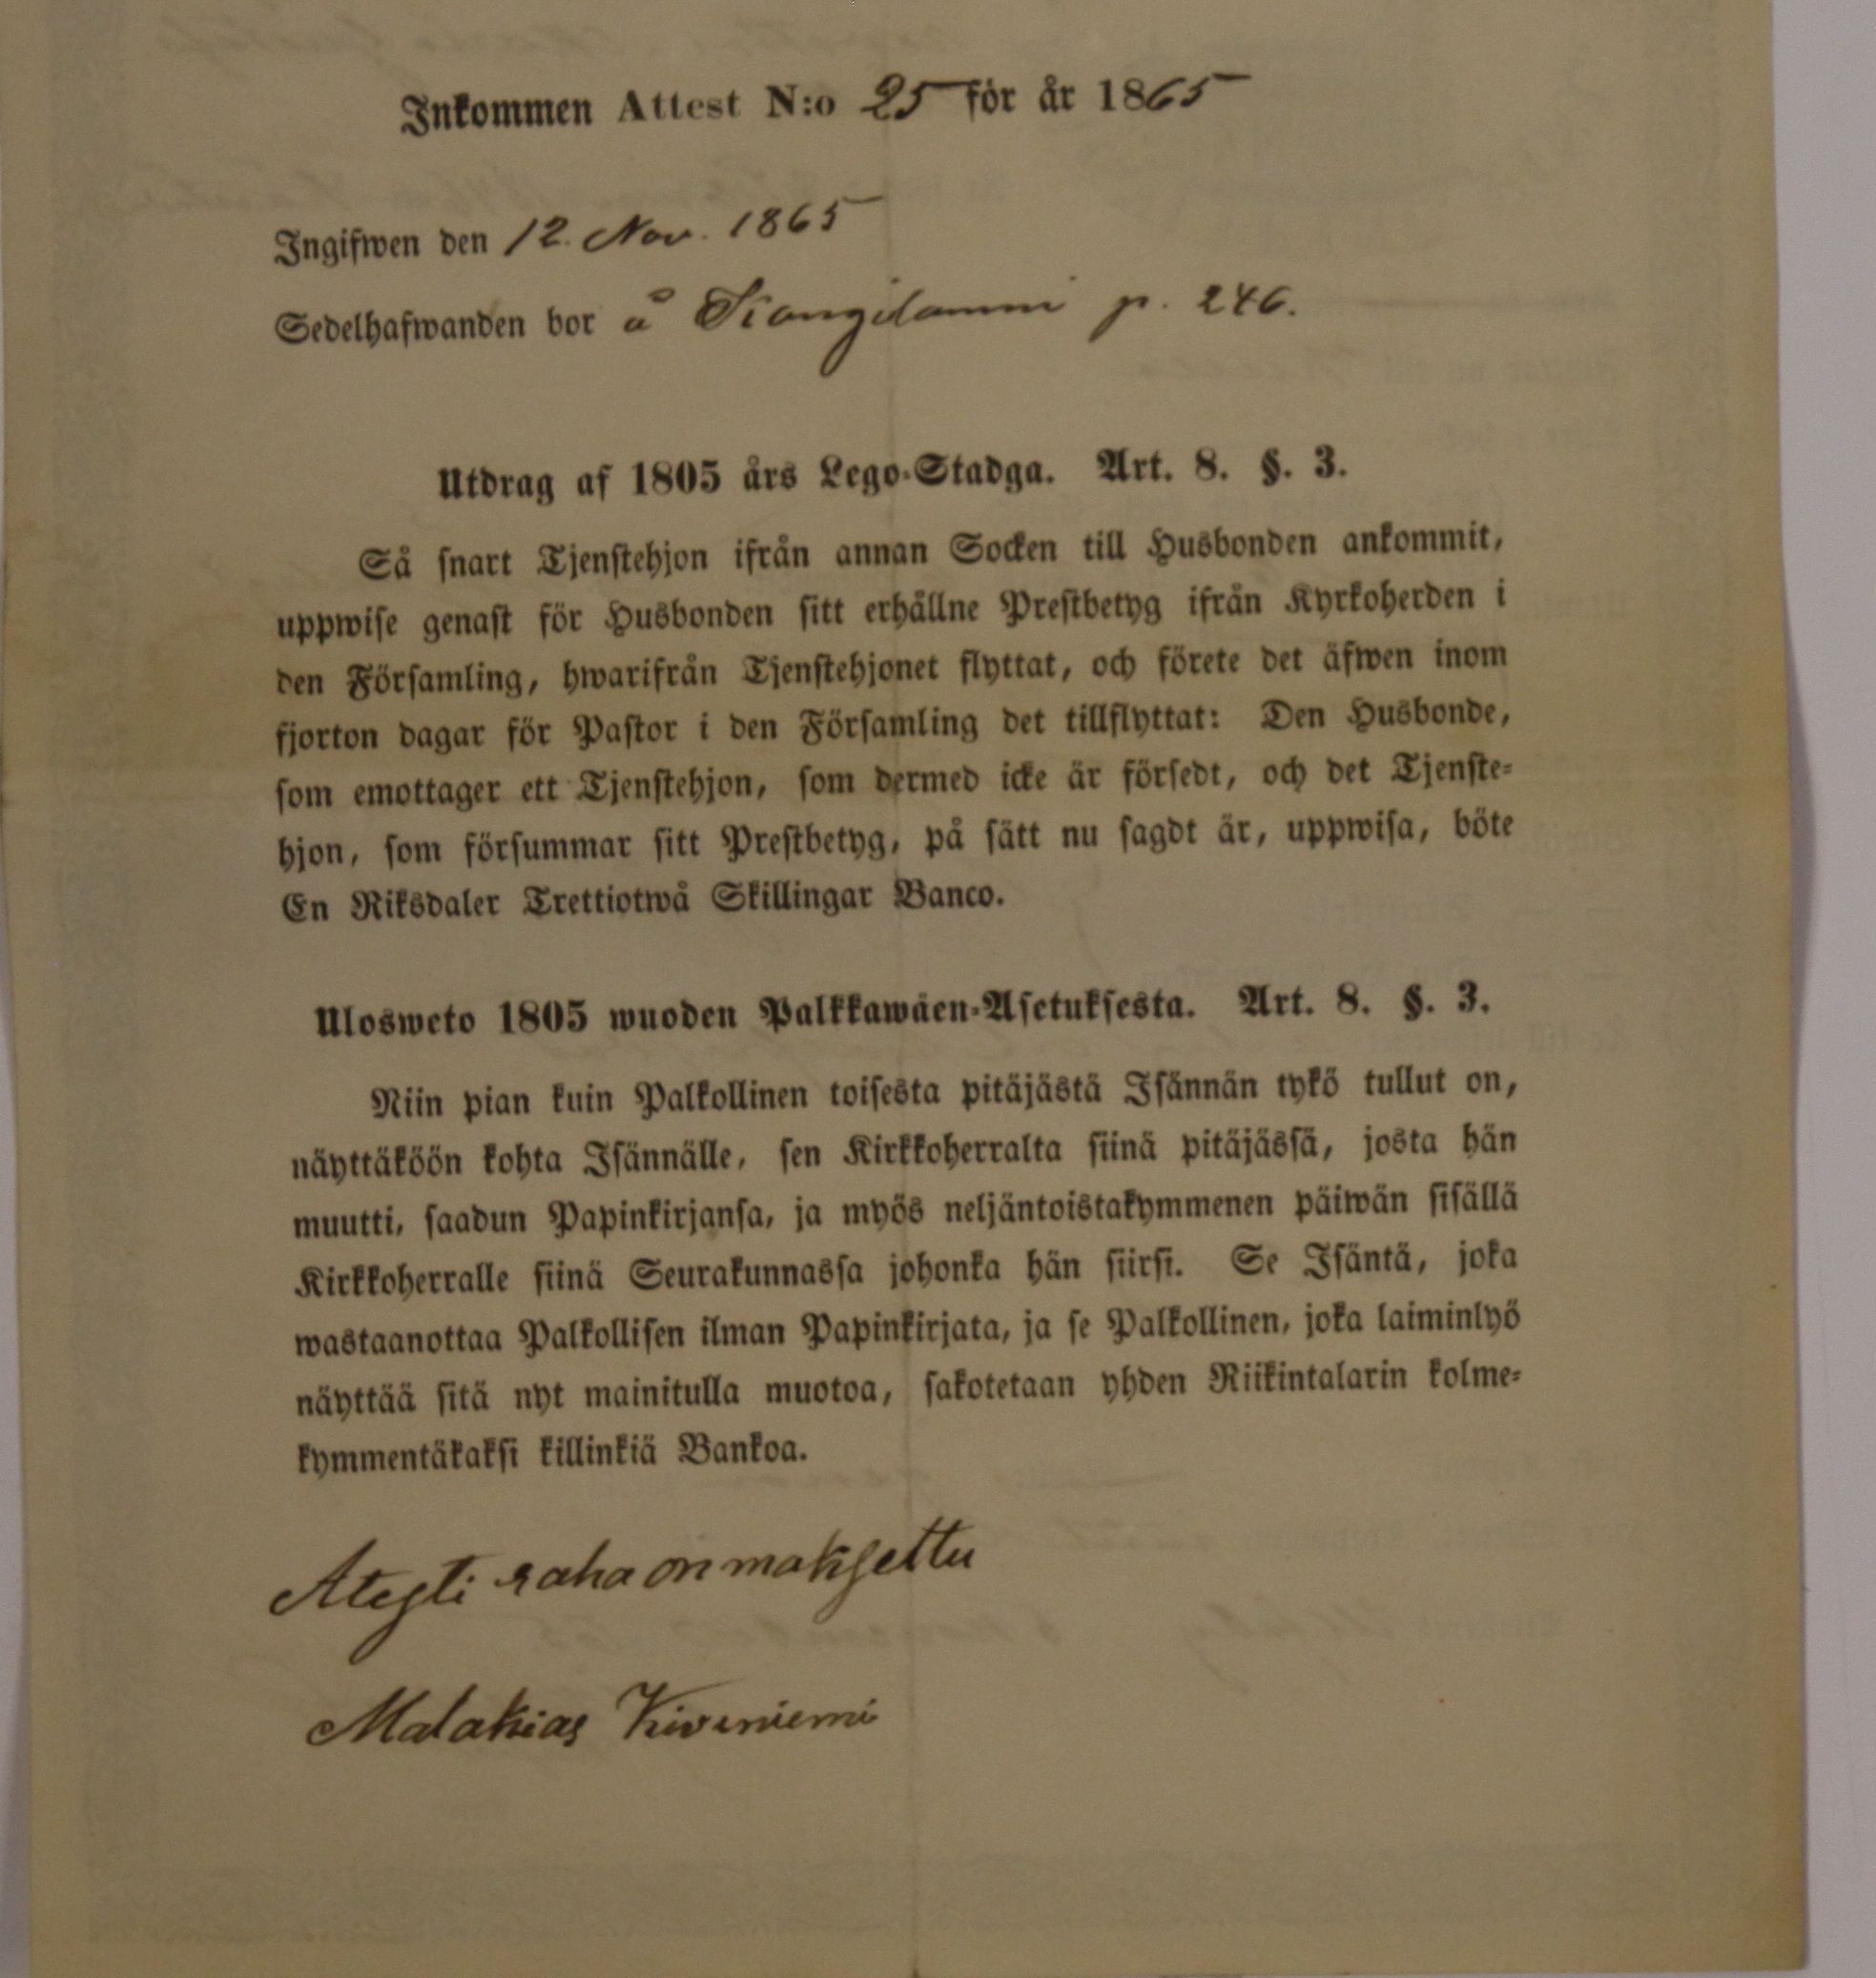 Inkommen Attest N:o 25 för år 1865
Ingifwen den 12. Nov. 1865
Sedelhafwanden bor å Kangilammi p. 246.
Utdrag af 1805 års Lego-Stadga. Art. 8. §. 3.
Så snart Tjenstehjon ifrån annan Socken till Husbonden ankommit,
uppwise genast för Husbonden sitt erhållne Prestbetyg ifrån Kyrkoherden i
den Församling, hwarifrån Tjenstehjonet flyttat, och förete det äfwen inom
fjorton dagar för Pastor i den Församling det tillflyttat: Den Husbonde,
som emottager ett Tjenstehjon, som dermed icke är försedt, och det Tjenste-
hjon, som försummar sitt Prestbetyg, på sätt nu sagdt är, uppwisa, böte
En Riksdaler Trettiotwå Skillingar Banco.
Ulosweto 1805 wuoden Palkkawäen-Asetuksesta. Art. 8. §. 3.
Niin pian kuin Palkollinen toisesta pitäjästä Isännän tykö tullut on,
näyttäköön kohta Isännälle, sen Kirkkoherralta siinä pitäjässä, josta hän
muutti, saadun Papinkirjansa, ja myös neljäntoistakymmenen päiwän sisällä
Kirkkoherralle siinä Seurakunnassa johonka hän siirsi. Se Isäntä, joka
wastaanottaa Palkollisen ilman Papinkirjata, ja se Palkollinen, joka laiminlyö
näyttää sitä nyt mainitulla muotoa, sakotetaan yhden Riikintalarin kolme-
kymmentäkaksi killinkiä Bankoa.
Atesti raha on maksettu
Malakias Kiviniemi